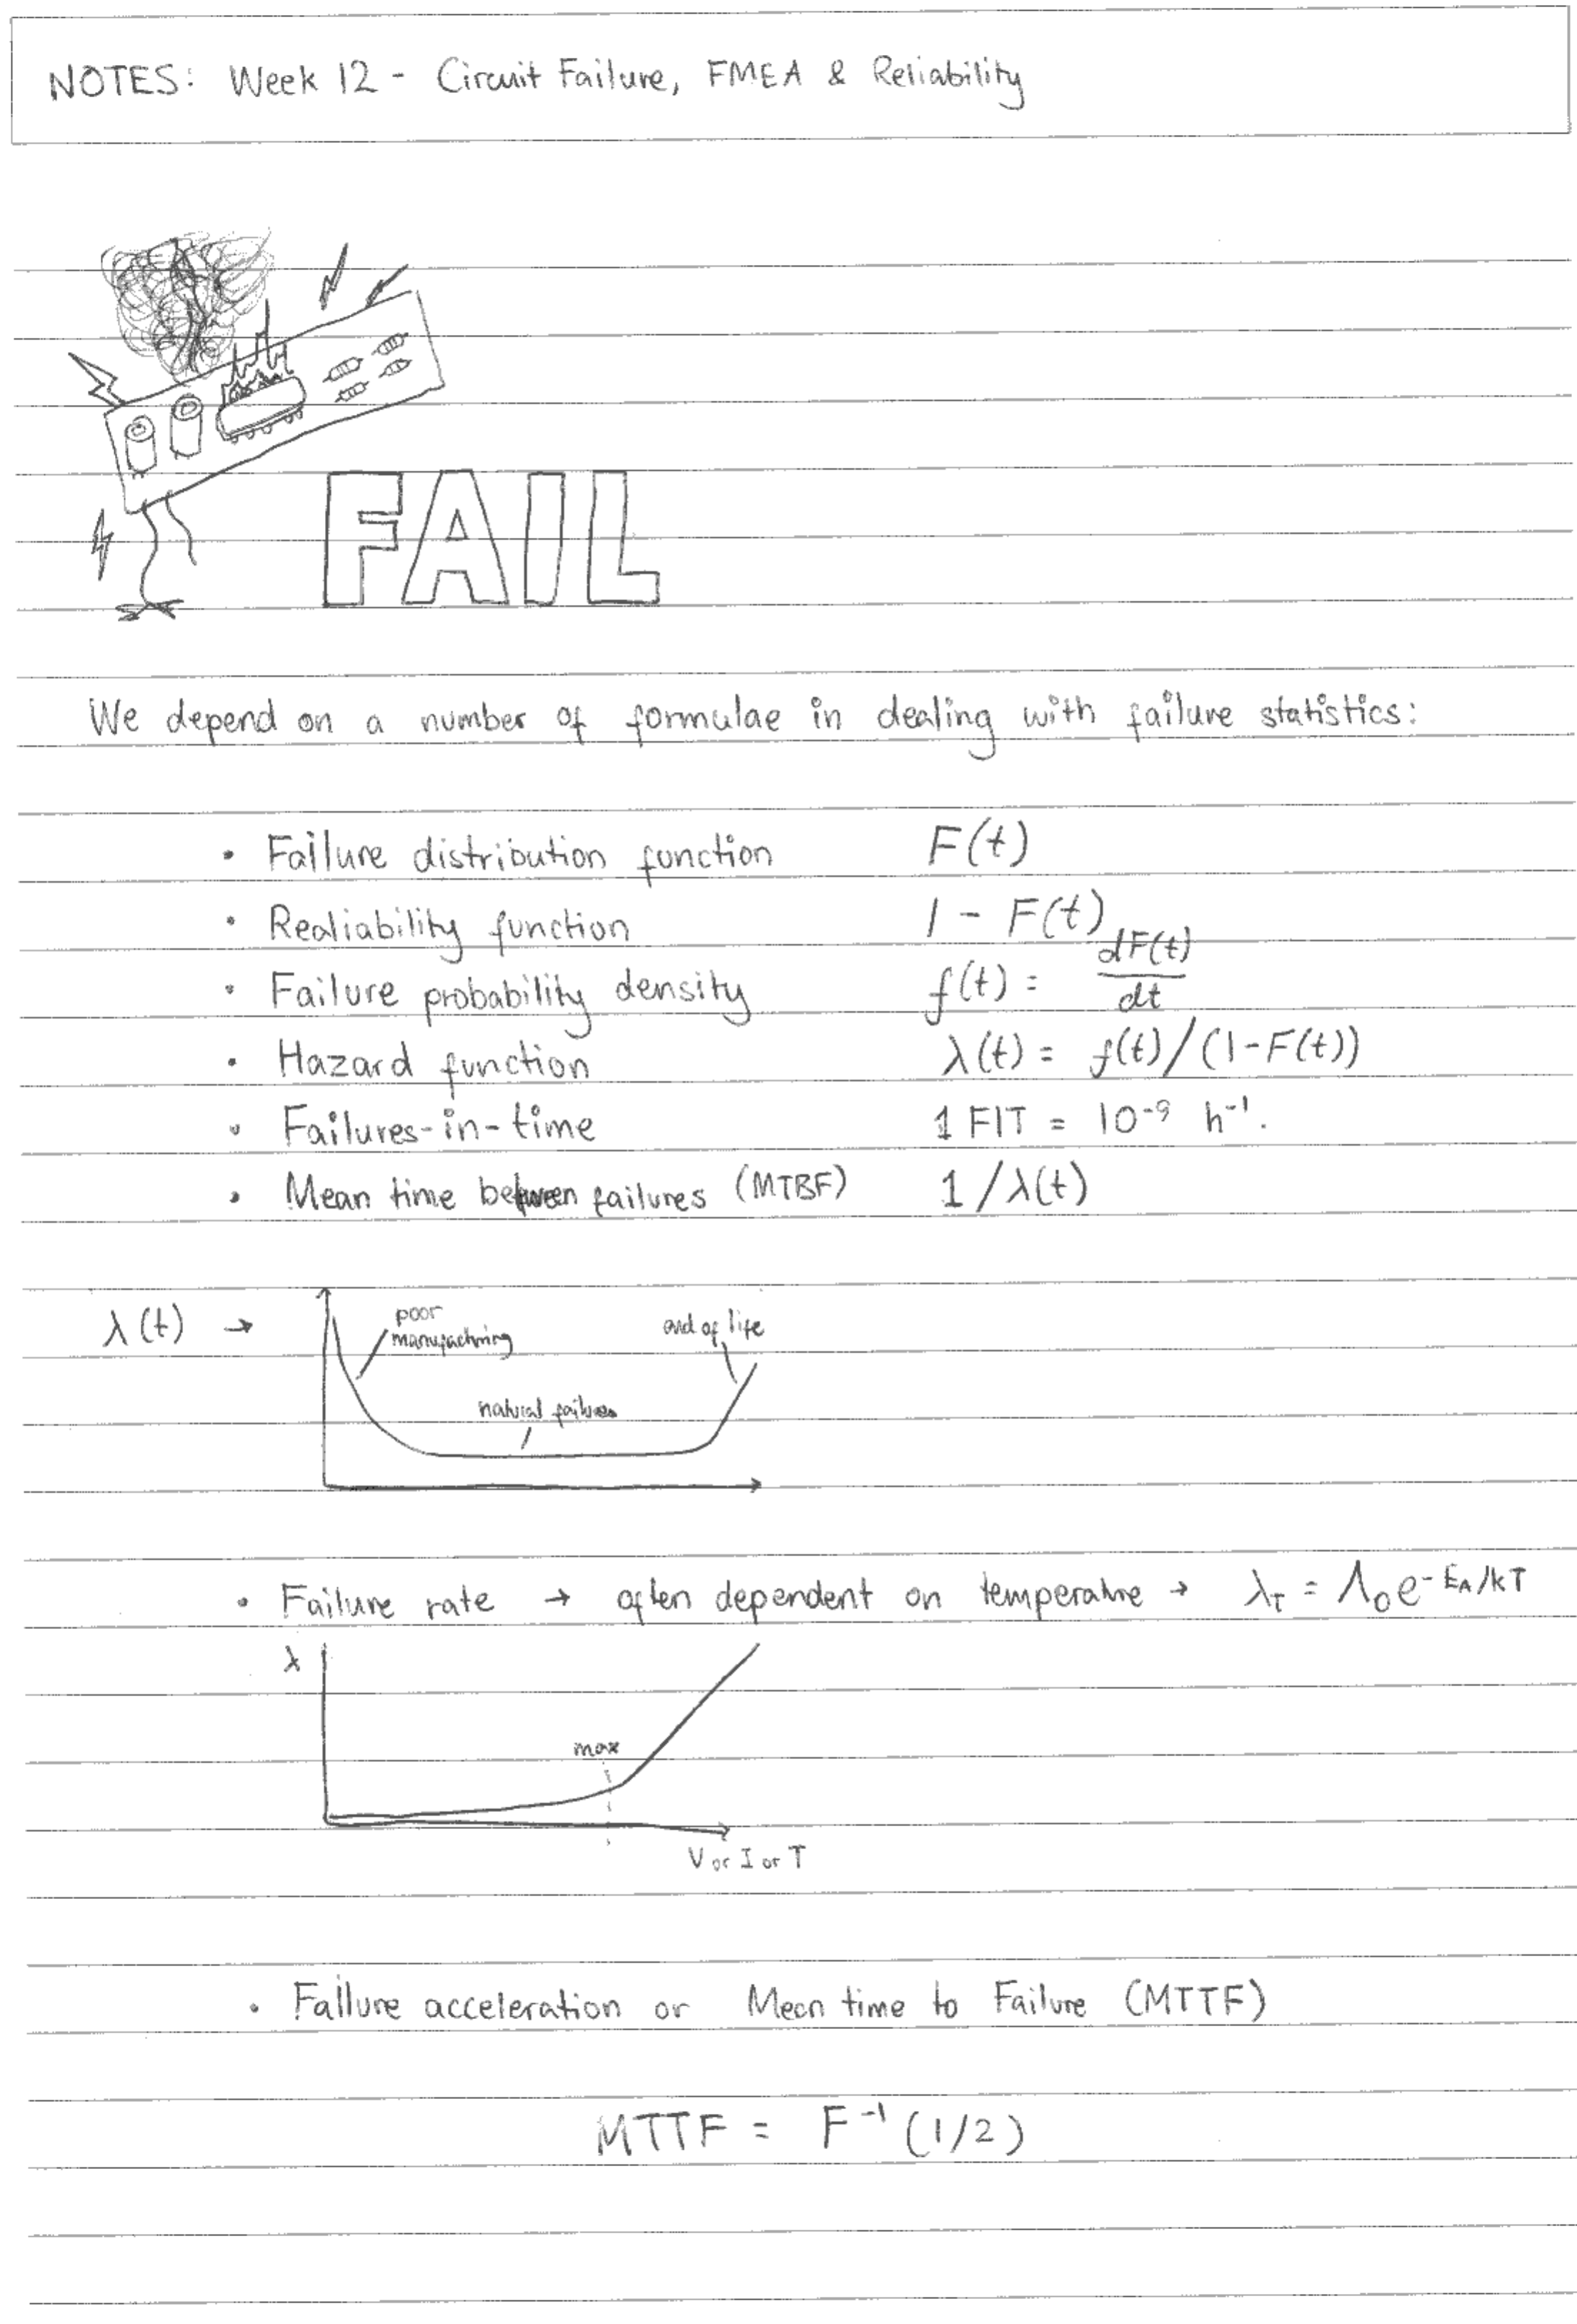 NOTES: Week 12 - Circuit Failure, FMEA & Reliability
FAIL
We depend on a number of formulae in dealing with failure statistics:
• Failure distribution function F(t)
• Realiability function 1 - F(t)
• Failure probability density f(t) = dF(t)/dt
• Hazard function λ(t) = f(t)/(1-F(t))
• Failures-in-time 1 FIT = 10⁻⁹ h⁻¹.
• Mean time between failures (MTBF) 1/λ(t)
λ(t) →
poor
manufactring
end of life
natural failures
• Failure rate → often dependent on temperature → λ_T = Λ₀e^(-E_A/kT)
λ
max
V or I or T
• Failure acceleration or Mean time to Failure (MTTF)
MTTF = F⁻¹(1/2)